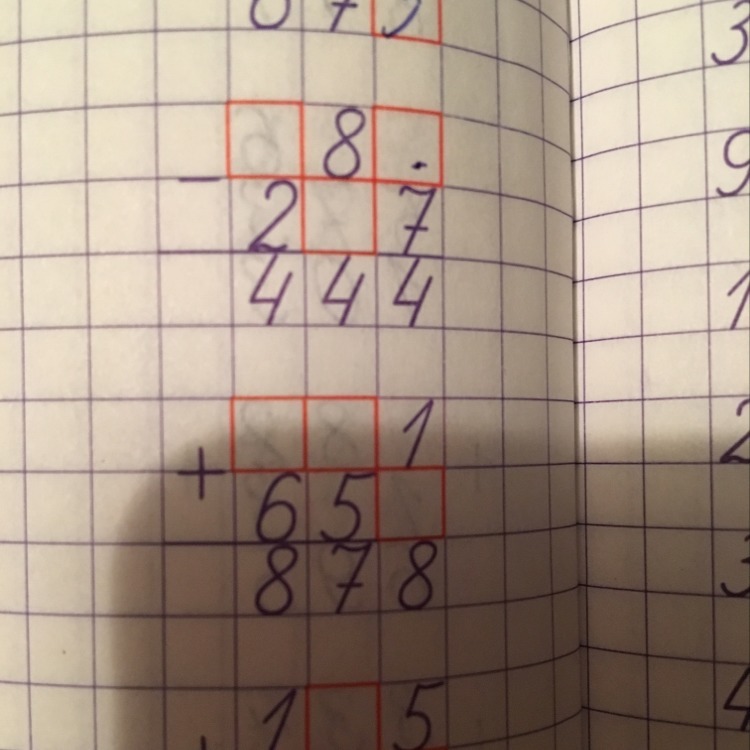 8 .
- 2 7
4 4 4
1
+ 6 5
8 7 8
1 5
3
9
1
2
3
4